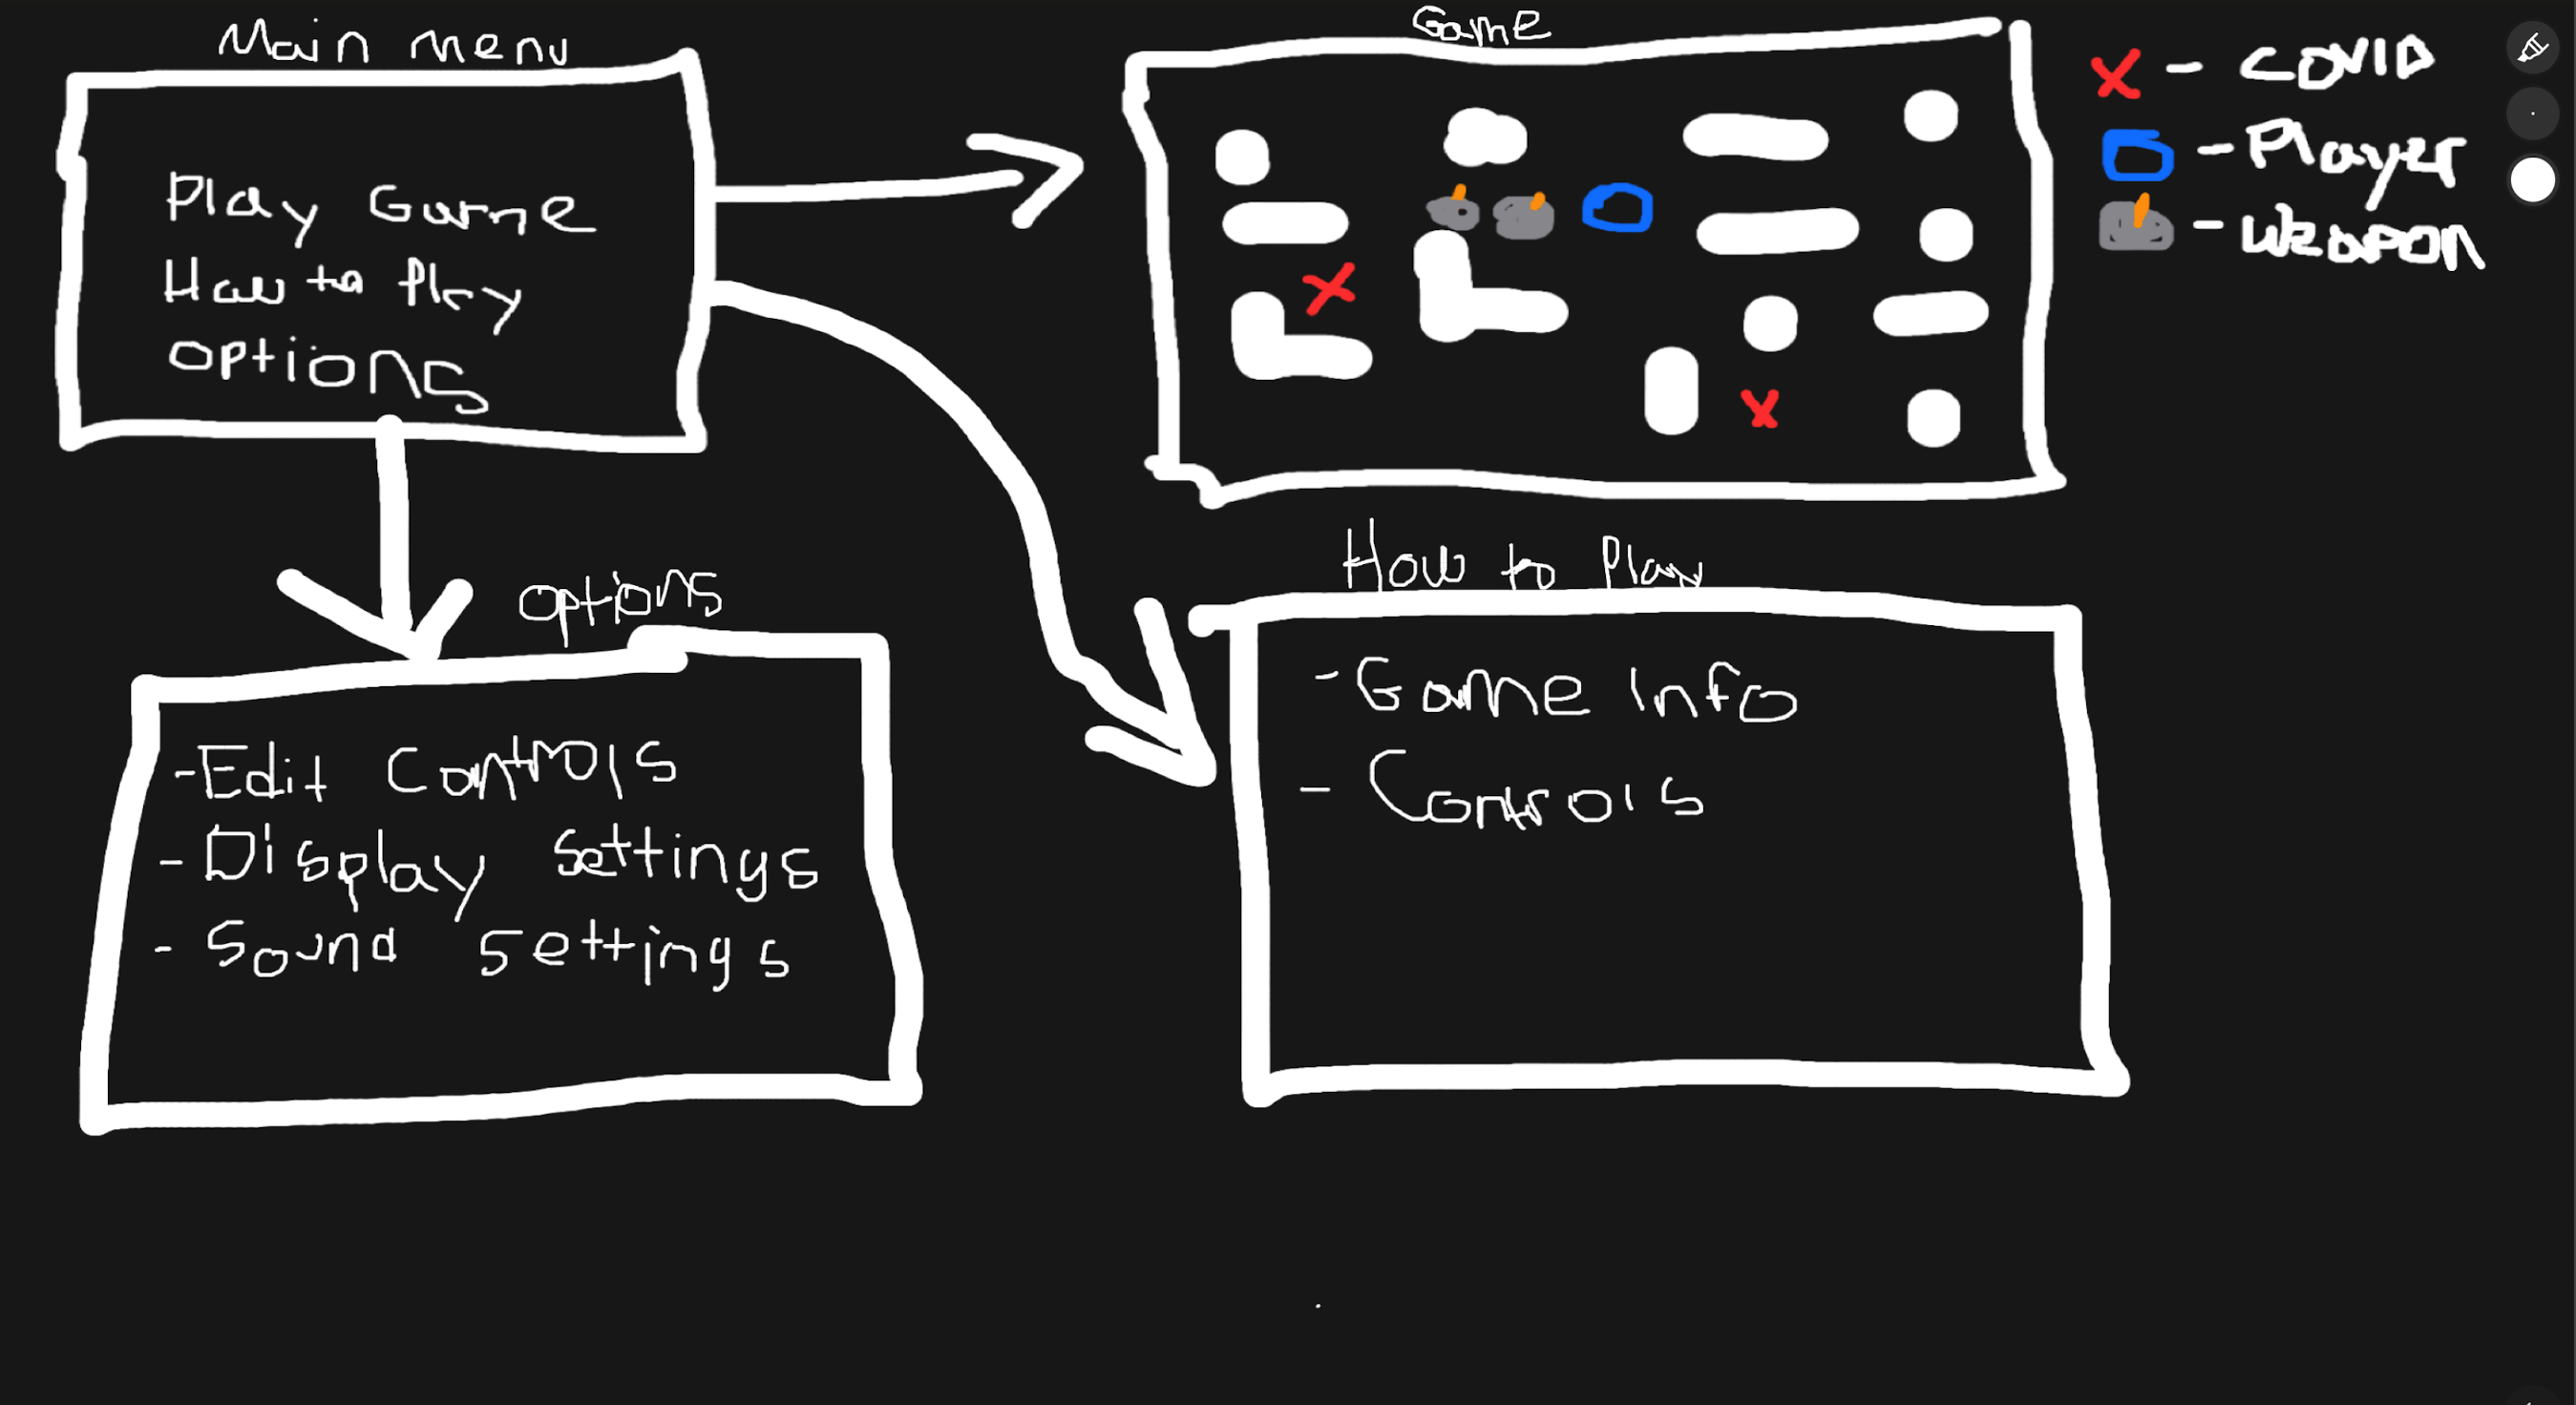 Main menu
Play Game
How to Play
options
Game
X - COVID
- Player
- Weapon
options
- Edit Controls
- Display settings
- Sound settings
How to Play
- Game Info
- Controls